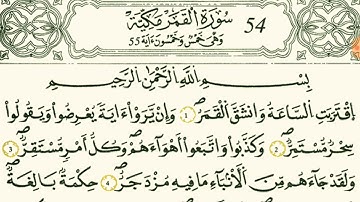 سُورَةُ الْقَمَرِ مَكِّيَّةٌ 54
وَهْيَ خَمْسٌ وَخَمْسُونَ ءَايَةً 55
بِسْمِ اللَّهِ الرَّحْمَٰنِ الرَّحِيمِ
اِقْتَرَبَتِ السَّاعَةُ وَانشَقَّ الْقَمَرُ 1 وَإِنْ يَّرَوْا ءَايَةً يُعْرِضُوا وَيَقُولُوا
سِحْرٌ مُّسْتَمِرٌّ 2 وَكَذَّبُوا وَاتَّبَعُوا أَهْوَاءَهُمْ وَكُلُّ أَمْرٍ مُّسْتَقِرٌّ 3
وَلَقَدْ جَاءَهُم مِّنَ الْأَنْبَاءِ مَا فِيهِ مُزْدَجَرٌ 4 حِكْمَةٌ بَالِغَةٌ